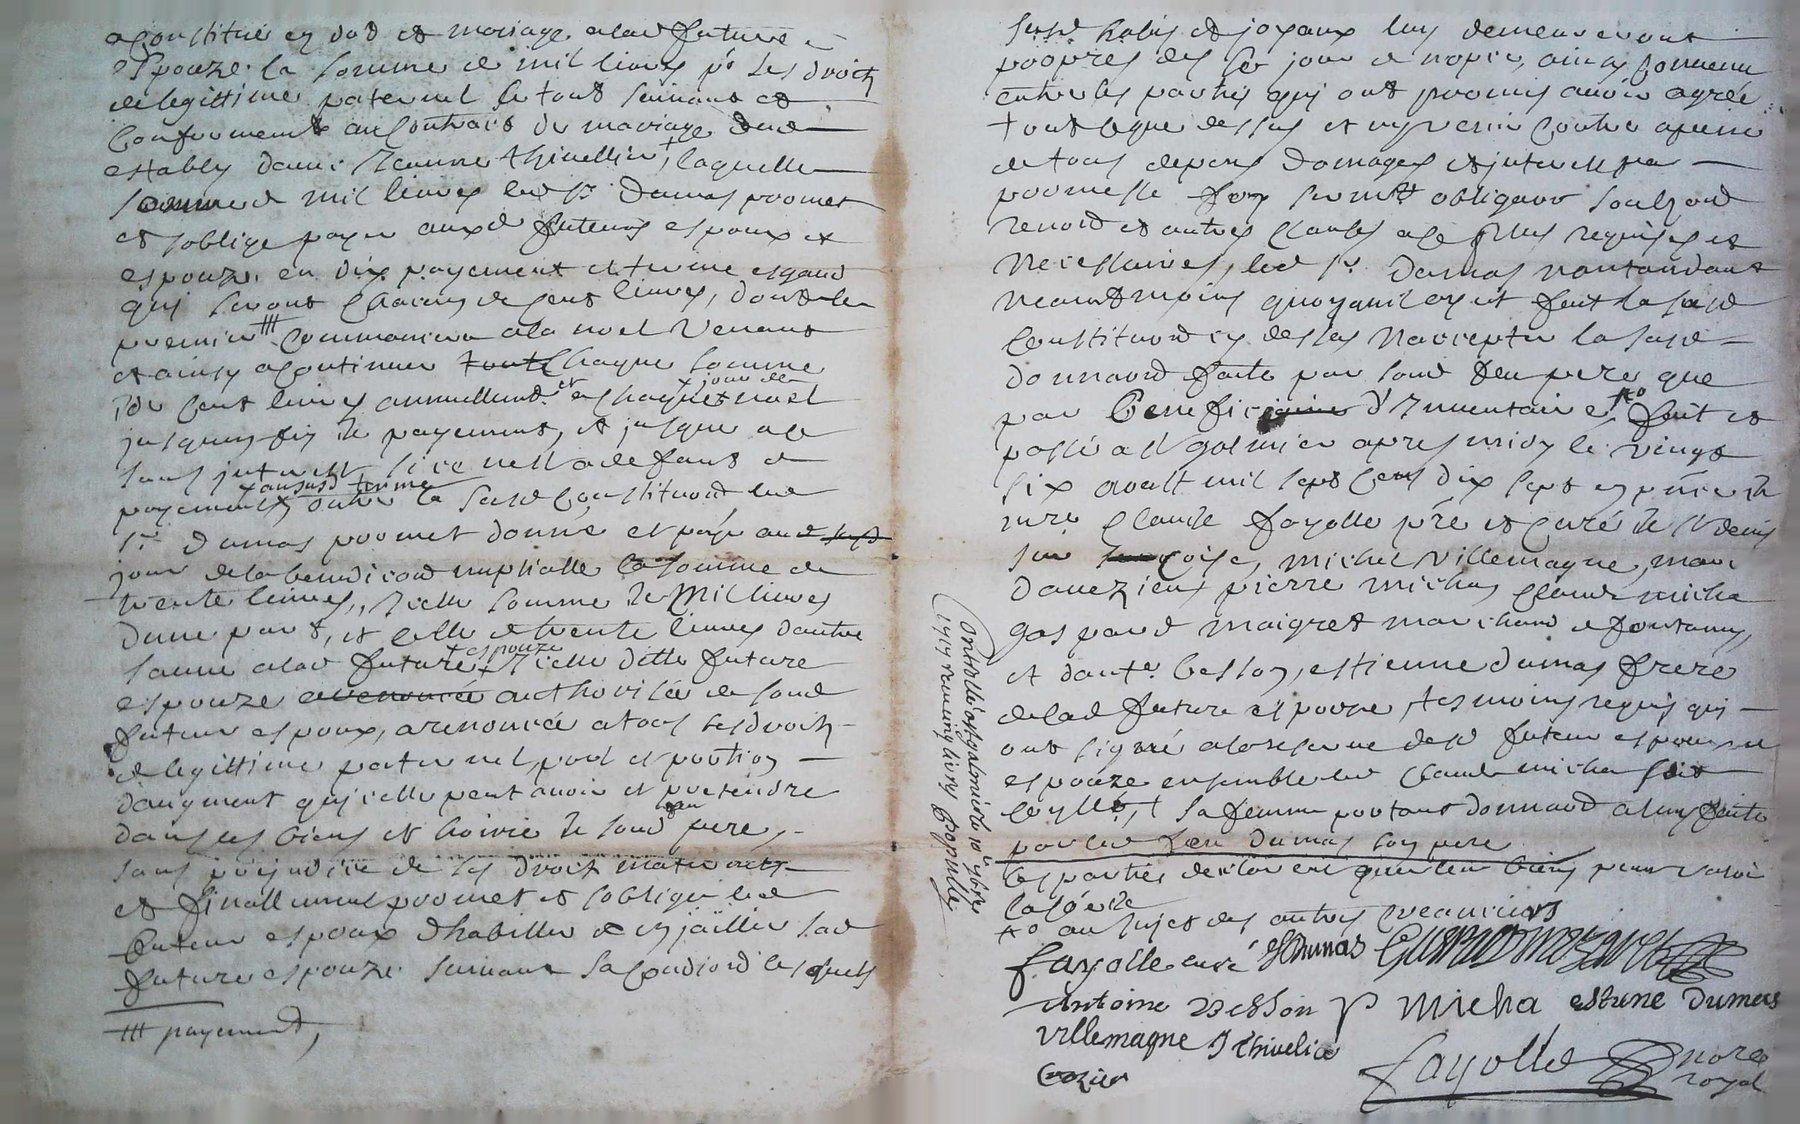 a constitué en dot et mariage a lad future
espouze la somme de mil livres pr ses droits
de legittime paternel le tout suivant et
conformement au contract de mariage dud
estably dame Jeanne thivellier, laquelle
somme de mil livres led sr dumas promet
et soblige payer auxd futeurs espoux et
espouze en dix payement et terme esgaud
qui seront chacun de cent livres, dont le
premier commancera a la noel venant
et ainsy a continuer chaque somme
de cent livres annuellemt et a chaque jour de noel
jusques fin de payement, et jusque a ce
sans interest si ce nest a defaut de
payement aususd terme outre la susd constituond led
sr dumas promet donné et payé aud
jour de la benediction nuptialle la somme de
trente livres, Icelle somme de mil livres
dune part, et celle de trente livres dautre
a lad future espouze Icelle ditte future
espouze authorisée de sond
futeur espoux, a renoncée a tous ses droits
de legittime paternel, part et portion
daugment quicelle peut avoir et pretendre
dans les biens et hoirie de sond feu pere,
sans prejudice de ses droits maternels
et finallement promet et soblige led
futeur espoux dhabiller et enjailler lad
future espouze suivant sa condiond lesquels
payement,
susd habis et joyaux luy demeureront
propres des le jour de nopce, ainsy convenu
entre les parties qui ont promis avoir agréé
tout ce que dessus et ny venir contre a peine
de tous depens domages et interests par
promesse foy sermt obligaon soubzond
renond et autres clauses a ce plus requises et
necessaires, led sr dumas nantandant
neantmoins quoyquil aye fait la susd
constituond cy dessus naccepter la susd
donnaond faite par sond feu pere que
par benefice dInventaire fait et
passé a st galmier apres midy le vingt
six avalt mil sept cent dix sept en presence de
mre claude fayolle pre et curé de st denis
sur coise, michel villemagne, marc
davezieux pierre micha claude micha
gaspard maigret marchand de fontanes,
et dant. besson, estienne dumas frere
de lad future espouze, tesmoins requis qui
ont signé a la reserve desd futeur espoux et
espouze ensemble led claude micha
sa femme portant donnaond a luy faite
par led feu dumas son pere
les parties declarent que leur biens peuvent valoir
la so de
au sujet des autres creanciers
fayolle curé Dumas
Antoine Besson P Micha estiene Dumas
Villemagne J thivelier
crozier
fayolle nore royal
Controllé a st galmier le 10e
1717 receu cinq livres